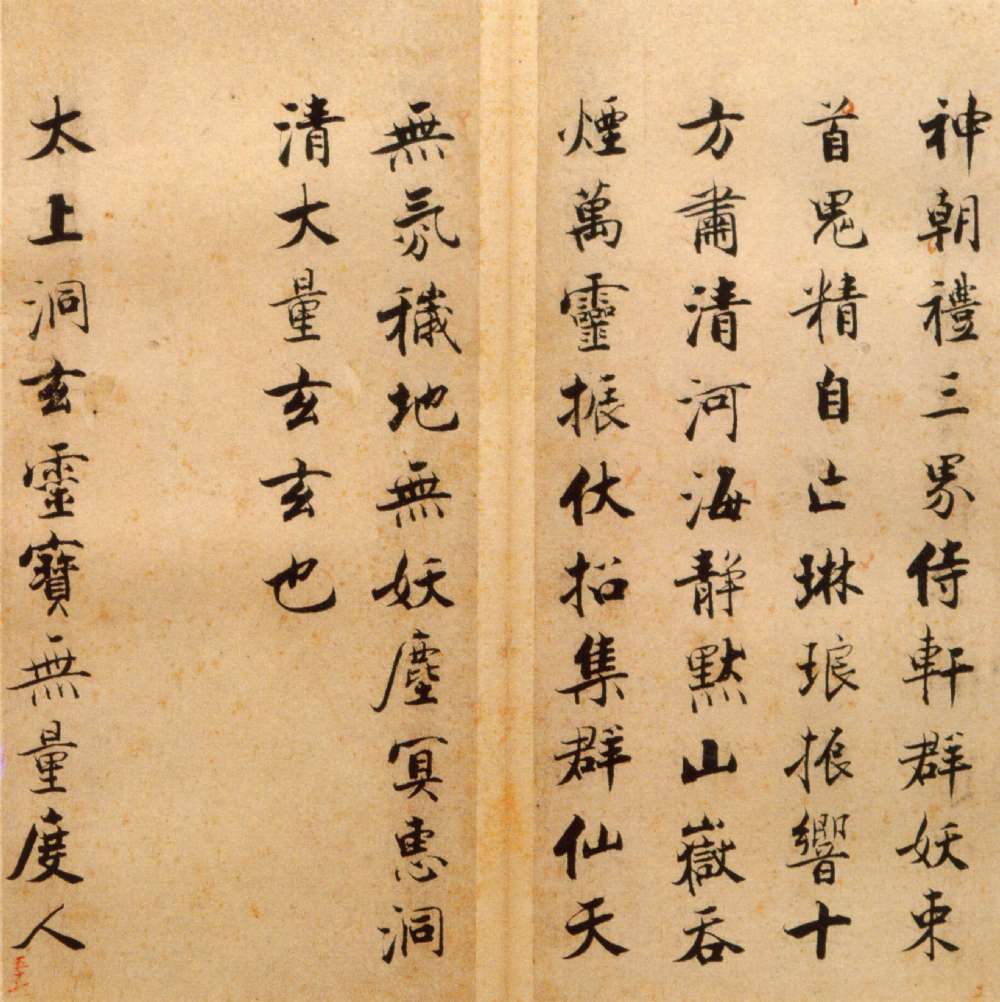 神朝禮三界侍軒群妖束
首鬼精自亡琳琅振響十
方肅清河海静默山嶽吞
煙萬靈振伏招集群仙天
無氛穢地無妖塵冥慧洞
清大量玄玄也
太上洞玄靈寶無量度人